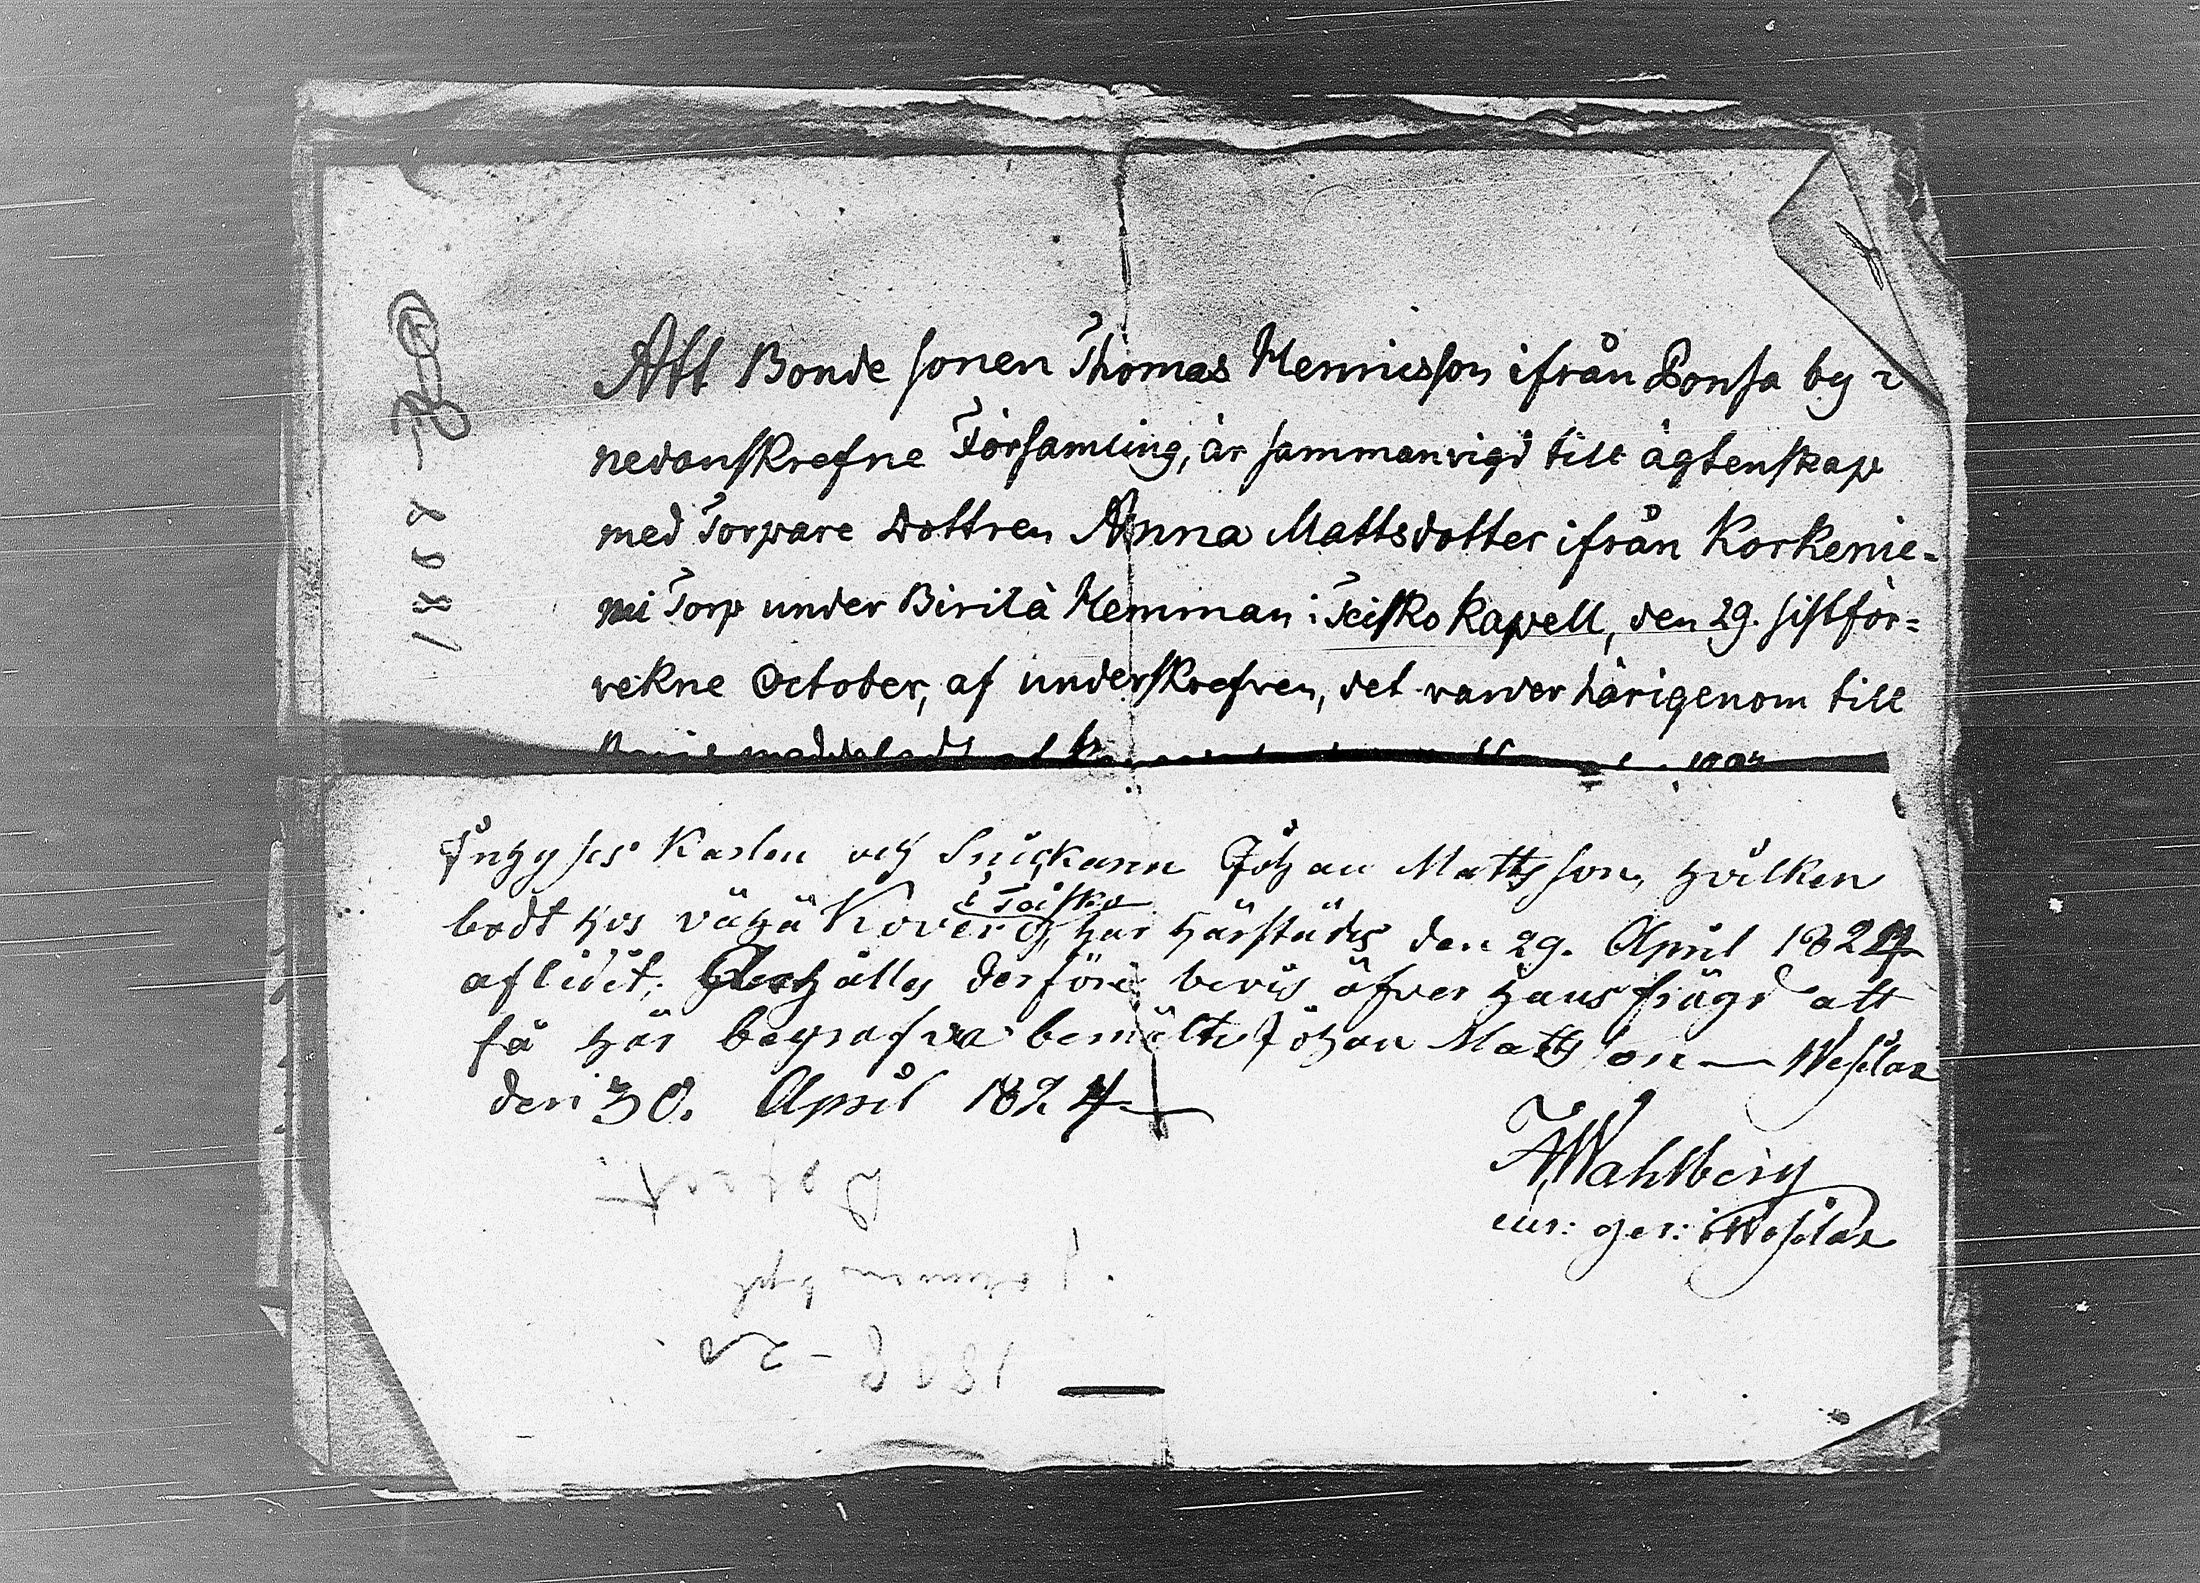 Att Bonde sonen Thomas Hennicsson ifrån Ponsa by i
nedanskrefne Församling, är sammanvigd till ägtenskap
med Torpare Dottren Anna Mattsdotter ifrån Korkenie=
mi Torp under Birilä Hemman i Teisko Kapell, den 29. sistför=
vekne October, af underskrefven, det varder härigenom till
Inhyses Karlen och Snickaren Johan Mattsson, hvilken
i Teisko
bodt hos Vähä Kovero, har härstädes den 29. April 1824
aflidit; Åberhålles derföre bevis öfver hans frägd att
få här begrafva bemälte Johan Mattsson — Wesilax
den 30. April 1824
A Wahlberg
cur: ger: i Wesilax
1808 - 20